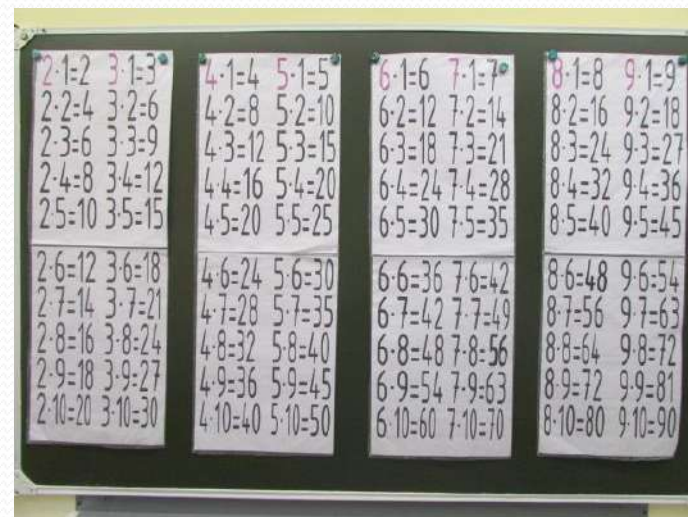 2·1=2 3·1=3
2·2=4 3·2=6
2·3=6 3·3=9
2·4=8 3·4=12
2·5=10 3·5=15
2·6=12 3·6=18
2·7=14 3·7=21
2·8=16 3·8=24
2·9=18 3·9=27
2·10=20 3·10=30
4·1=4 5·1=5
4·2=8 5·2=10
4·3=12 5·3=15
4·4=16 5·4=20
4·5=20 5·5=25
4·6=24 5·6=30
4·7=28 5·7=35
4·8=32 5·8=40
4·9=36 5·9=45
4·10=40 5·10=50
6·1=6 7·1=7
6·2=12 7·2=14
6·3=18 7·3=21
6·4=24 7·4=28
6·5=30 7·5=35
6·6=36 7·6=42
6·7=42 7·7=49
6·8=48 7·8=56
6·9=54 7·9=63
6·10=60 7·10=70
8·1=8 9·1=9
8·2=16 9·2=18
8·3=24 9·3=27
8·4=32 9·4=36
8·5=40 9·5=45
8·6=48 9·6=54
8·7=56 9·7=63
8·8=64 9·8=72
8·9=72 9·9=81
8·10=80 9·10=90